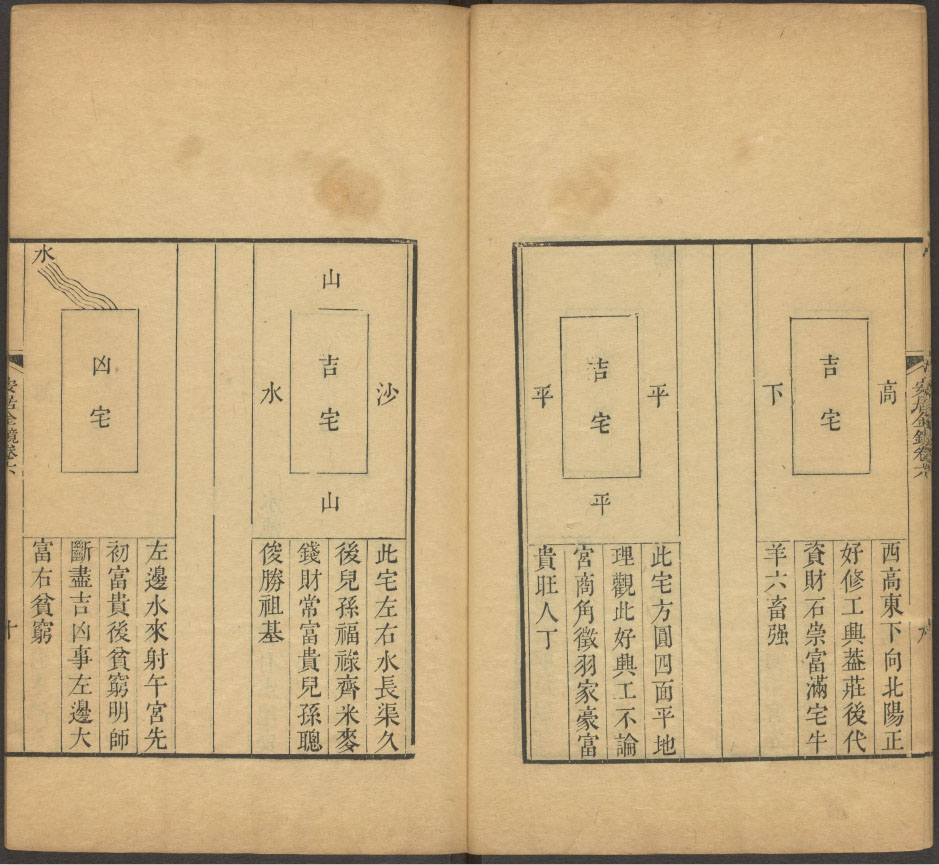 高
吉宅
下
西高東下向北陽正
好修工興葢莊後代
資財石崇富滿宅牛
羊六畜强
平
吉宅
平
平
此宅方圓四面平地
理觀此好興工不論
宮商角徵羽家豪富
貴旺人丁
山
沙
吉宅
水
山
此宅左右水長渠久
後兒孫福祿齊米麥
錢財常富貴兒孫聰
俊勝祖基
水
凶宅
左邊水來射午宮先
初富貴後貧窮明師
斷盡吉凶事左邊大
富右貧窮
安居金鏡卷六
十